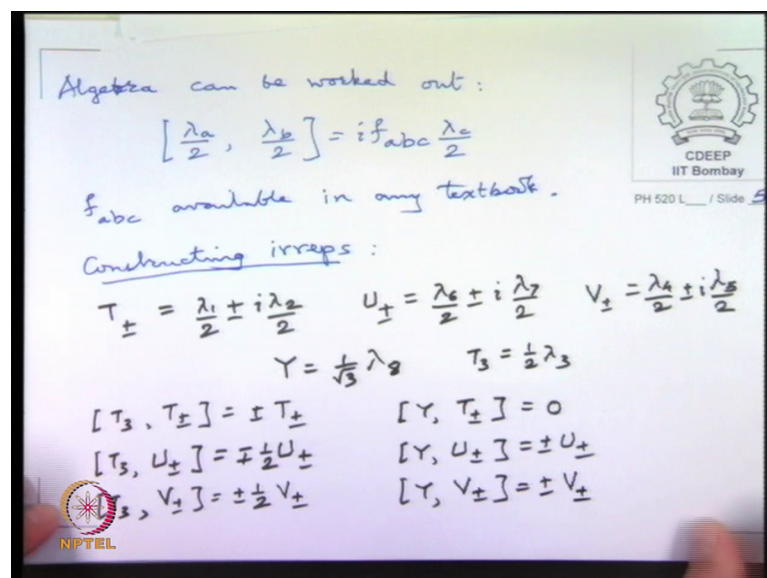 Algebra can be worked out :
[λa/2 , λb/2] = i fabc λc/2
CDEEP
IIT Bombay
PH 520 L___ / Slide 5
fabc available in any textbook.
Constructing irreps :
T± = λ1/2 ± i λ2/2 U± = λ6/2 ± i λ7/2 V± = λ4/2 ± i λ5/2
Y = 1/√3 λ8 T3 = 1/2 λ3
[T3 , T±] = ± T± [Y, T±] = 0
[T3, U±] = ∓ 1/2 U± [Y, U±] = ± U±
[T3, V±] = ± 1/2 V± [Y, V±] = ± V±
NPTEL